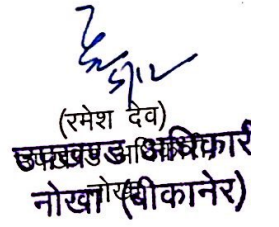 (रमेश देव)
उपखण्ड अधिकारी
नोखा (बीकानेर)